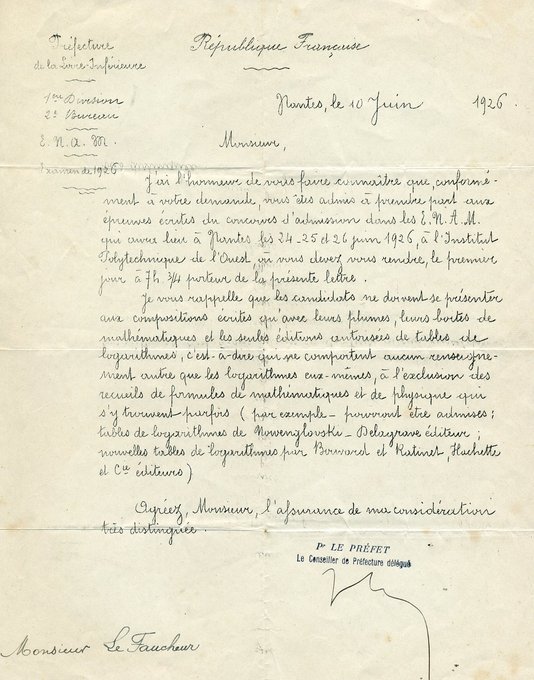 Préfecture
de la Loire-Inférieure
République Française
1ère Division
2e Bureau
Nantes, le 10 Juin 1926.
E. N. A. M.
Monsieur,
Examen de 1926
J'ai l'honneur de vous faire connaître que, conformé-
ment à votre demande, vous êtes admis à prendre part aux
épreuves écrites du concours d'admission dans les E. N. A. M.
qui aura lieu à Nantes les 24-25 et 26 juin 1926, à l'Institut
Polytechnique de l'Ouest, où vous devez vous rendre, le premier
jour à 7h. 3/4 porteur de la présente lettre.
Je vous rappelle que les candidats ne doivent se présenter
aux compositions écrites qu'avec leurs plumes, leurs boîtes de
mathématiques et les seules éditions autorisées de tables de
logarithmes, c'est-à-dire qui ne comportent aucun renseigne-
ment autre que les logarithmes eux-mêmes, à l'exclusion des
recueils de formules de mathématiques et de physique qui
s'y trouvent parfois (par exemple - pourront être admises :
tables de logarithmes de - Delagrave éditeur ;
nouvelles tables de logarithmes par et Ratinet, Hachette
et Cie éditeurs)
Agréez, Monsieur, l'assurance de ma considération
très distinguée.
Pr LE PRÉFET
Le Conseiller de Préfecture délégué
Monsieur Le Faucheur